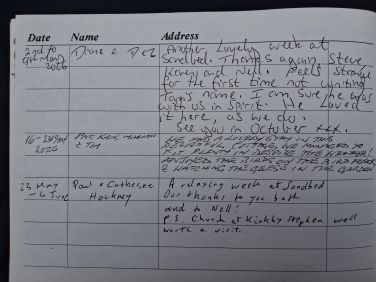 Date Name Address
2nd to 9th May 2026 Diane & Dez Another Lovely week at
Sandbed. Thanks again, Steve
and Nell. Feels strange
for the first time not writing
Tom's name. I am sure he was
with us in Spirit. He loved
it here, as we do.
See you in October xxx.
16 - 23 May 2026 Pat, & Tim WE HAD A GOOD STAY IN THIS
DELIGHTFUL COTTAGE, WE MANAGED TO
FIT PLENTY IN DESPITE THE WEATHER!
ENJOYED THE BIRDS ON THE BIRD FEEDER
& WATCHING THE GEESE IN THE GARDEN
23 May - 6 June Paul & Catherine Hockney A relaxing week at Sandbed
Our thanks to you both
and to Nell!
P.S. Church at Kirkby Stephen well
worth a visit.